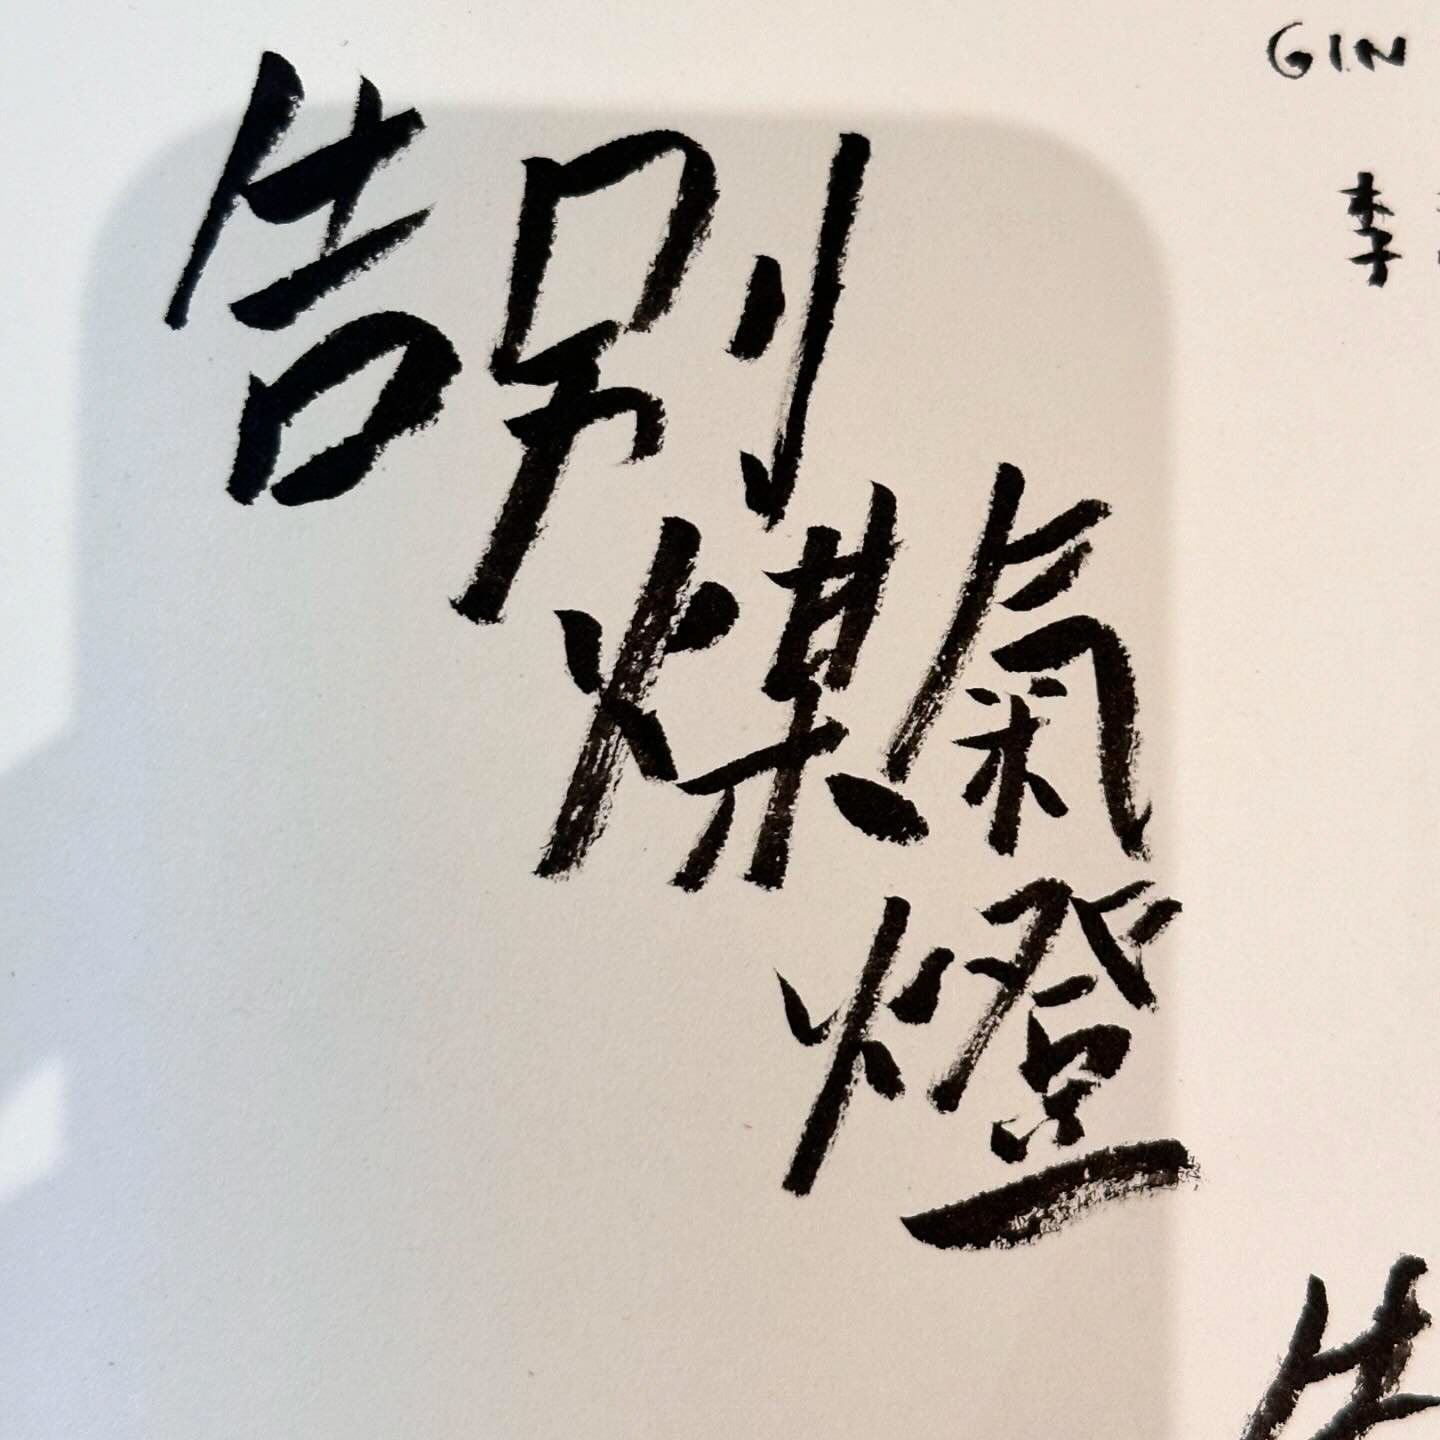 告別
煤氣
燈
GIN
李